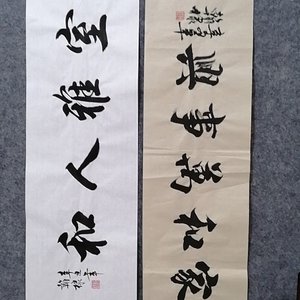 室雅人和
家和萬事興